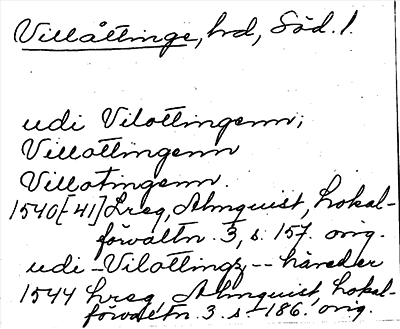 Villåttinge, hd, Söd. l.
udi Vilottingenn,
Villottingenn
Villotingenn.
1540[41] Lreg, Almquist, Lokal-
förvaltn. 3, s. 157. orig.
udi - Vilotting -- häreder
1544 Lreg, Almquist, Lokal-
förvaltn. 3 s 186. orig.